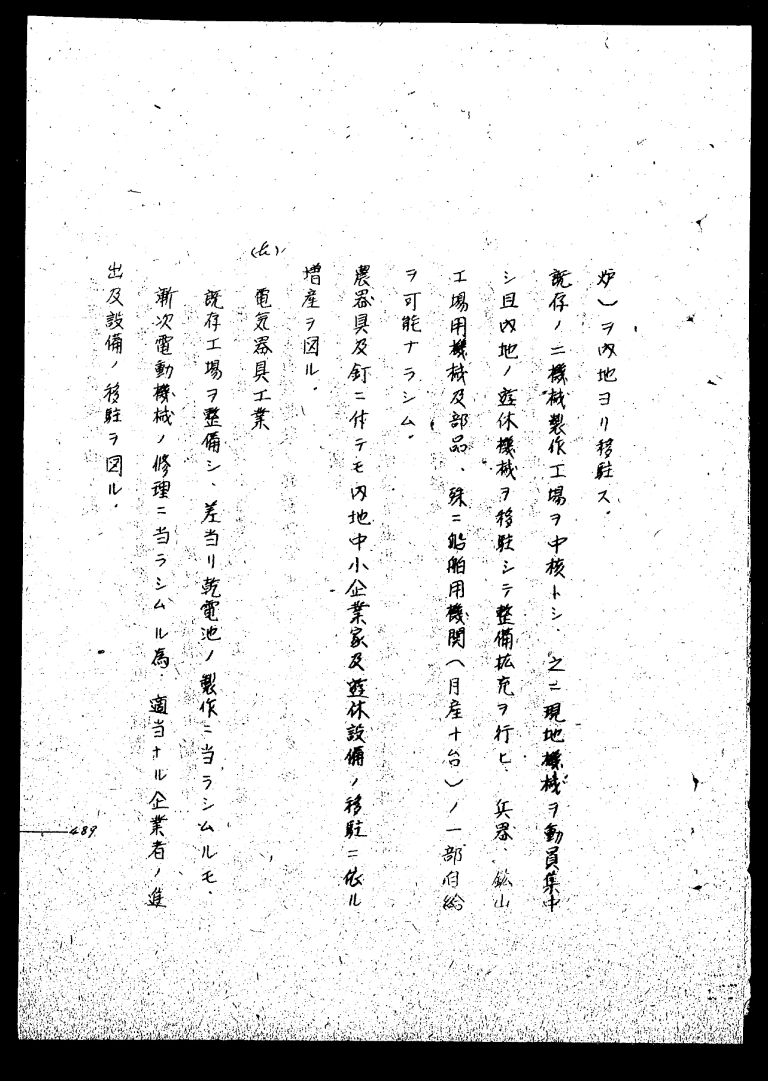 炉）ヲ内地ヨリ移駐ス．
既存ノ二機械製作工場ヲ中核トシ、之ニ現地機械ヲ動員集中
シ且内地ノ遊休機械ヲ移駐シテ整備拡充ヲ行ヒ、兵器、鉱山
工場用機械及部品、殊ニ船舶用機関（月産十台）ノ一部自給
ヲ可能ナラシム．
農器具及釘ニ付テモ内地中小企業家及遊休設備ノ移駐ニ依ル
増産ヲ図ル．
電気器具工業
既存工場ヲ整備シ、差当リ乾電池ノ製作ニ当ラシムルモ、
漸次電動機械ノ修理ニ当ラシムル為、適当ナル企業者ノ進
出及設備ノ移駐ヲ図ル．
489